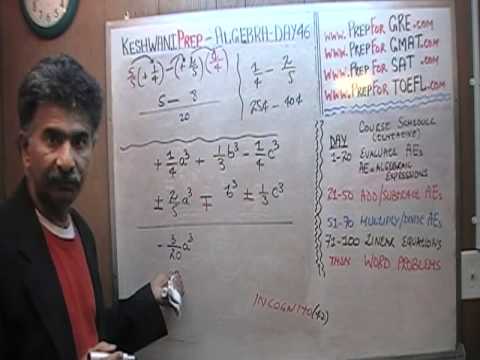 KESHWANI PREP - ALGEBRA-DAY 46
5/5(+1/4) - (+2/5)(4/4)
5 - 8
20
1/4 - 2/5
+1/4a³ + 1/3b³ - 1/4c³
± 2/5a³ ∓ b³ ± 1/3c³
-3/20a³
INCOGNITO (42)
www.PREPFOR GRE.com
www.PREPFOR GMAT.com
www.PREPFOR SAT.com
www.PREPFOR TOEFL.com
COURSE SCHEDULE
(TENTATIVE)
DAY
1-20 EVALUATE AEs
AE=ALGEBRAIC EXPRESSIONS
21-50 ADD/SUBTRACT AEs
51-70 MULTIPLY/DIVIDE AEs
71-100 LINEAR EQUATIONS
THEN WORD PROBLEMS